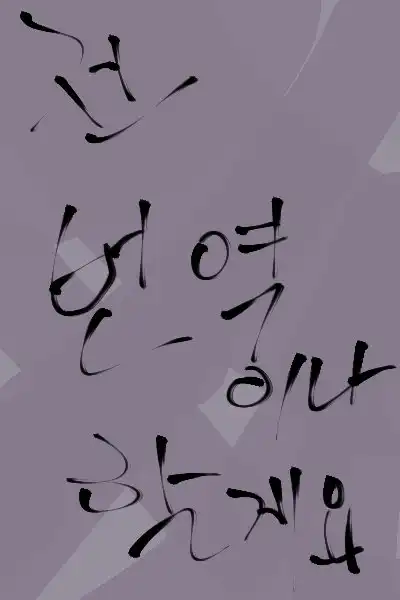 전
번역
이나
할게요